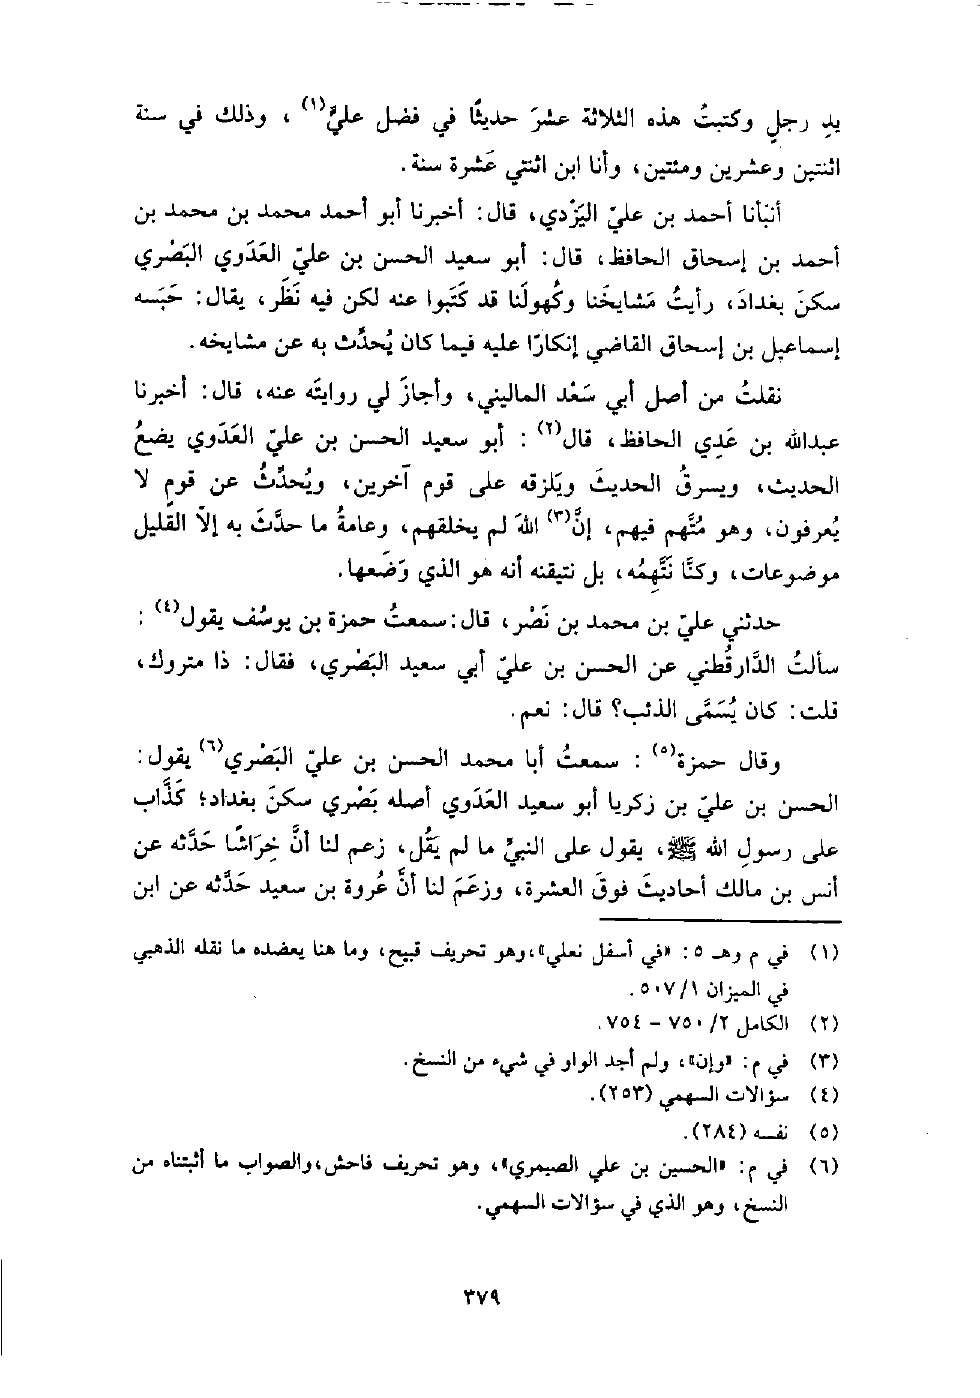 يدِ رجلٍ وكتبتُ هذه الثلاثة عشرَ حديثًا في فضل عليٍّ(١) ، وذلك في سنة
اثنتين وعشرين ومئتين، وأنا ابن اثنتي عَشرة سنة.
أنبأنا أحمد بن عليّ اليَزْدي، قال: أخبرنا أبو أحمد محمد بن محمد بن
أحمد بن إسحاق الحافظ، قال: أبو سعيد الحسن بن عليّ العَدَوي البَصْري
سكنَ بغدادَ، رأيتُ مَشايخَنا وكُهولَنا قد كَتَبوا عنه لكن فيه نَظَر، يقال: حَبَسه
إسماعيل بن إسحاق القاضي إنكارًا عليه فيما كان يُحدِّث به عن مشايخه.
نقلتُ من أصل أبي سَعْد الماليني، وأجازَ لي روايتَه عنه، قال: أخبرنا
عبدالله بن عَدِي الحافظ، قال(٢) : أبو سعيد الحسن بن عليّ العَدَوي يضعُ
الحديث، ويسرقُ الحديثَ ويَلزقه على قوم آخرين، ويُحدِّثُ عن قومٍ لا
يُعرفون، وهو مُتَّهم فيهم، إنَّ(٣) اللهَ لم يخلقهم، وعامةُ ما حدَّثَ به إلاَّ القليل
موضوعات، وكنَّا نَتَّهِمُه، بل نتيقنه أنه هو الذي وَضَعها.
حدثني عليّ بن محمد بن نَصْر، قال: سمعتُ حمزة بن يوسُف يقول(٤) :
سألتُ الدَّارقُطني عن الحسن بن عليّ أبي سعيد البَصْري، فقال: ذا متروك،
قلت: كان يُسَمَّى الذئب؟ قال: نعم.
وقال حمزة(٥) : سمعتُ أبا محمد الحسن بن عليّ البَصْري(٦) يقول:
الحسن بن عليّ بن زكريا أبو سعيد العَدَوي أصله بَصْري سكنَ بغداد؛ كَذَّاب
على رسولِ الله ﷺ، يقول على النبيِّ ما لم يَقُل، زعم لنا أنَّ خِرَاشًا حَدَّثه عن
أنس بن مالك أحاديثَ فوقَ العشرة، وزعَمَ لنا أنَّ عُروة بن سعيد حَدَّثه عن ابن
(١) في م وهـ ٥: «في أسفل نعلي»، وهو تحريف قبيح، وما هنا يعضده ما نقله الذهبي
في الميزان ١/ ٥٠٧.
(٢) الكامل ٢/ ٧٥٠ – ٧٥٤.
(٣) في م: «وإن»، ولم أجد الواو في شيء من النسخ.
(٤) سؤالات السهمي (٢٥٣).
(٥) نفسه (٢٨٤).
(٦) في م: «الحسين بن علي الصيمري»، وهو تحريف فاحش، والصواب ما أثبتناه من
النسخ، وهو الذي في سؤالات السهمي.
٣٧٩